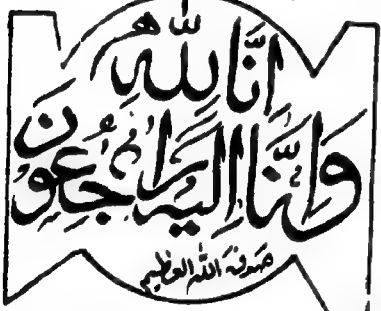 إنَّا لله
وَإنَّا إليه راجعُون
صدق الله العظيم